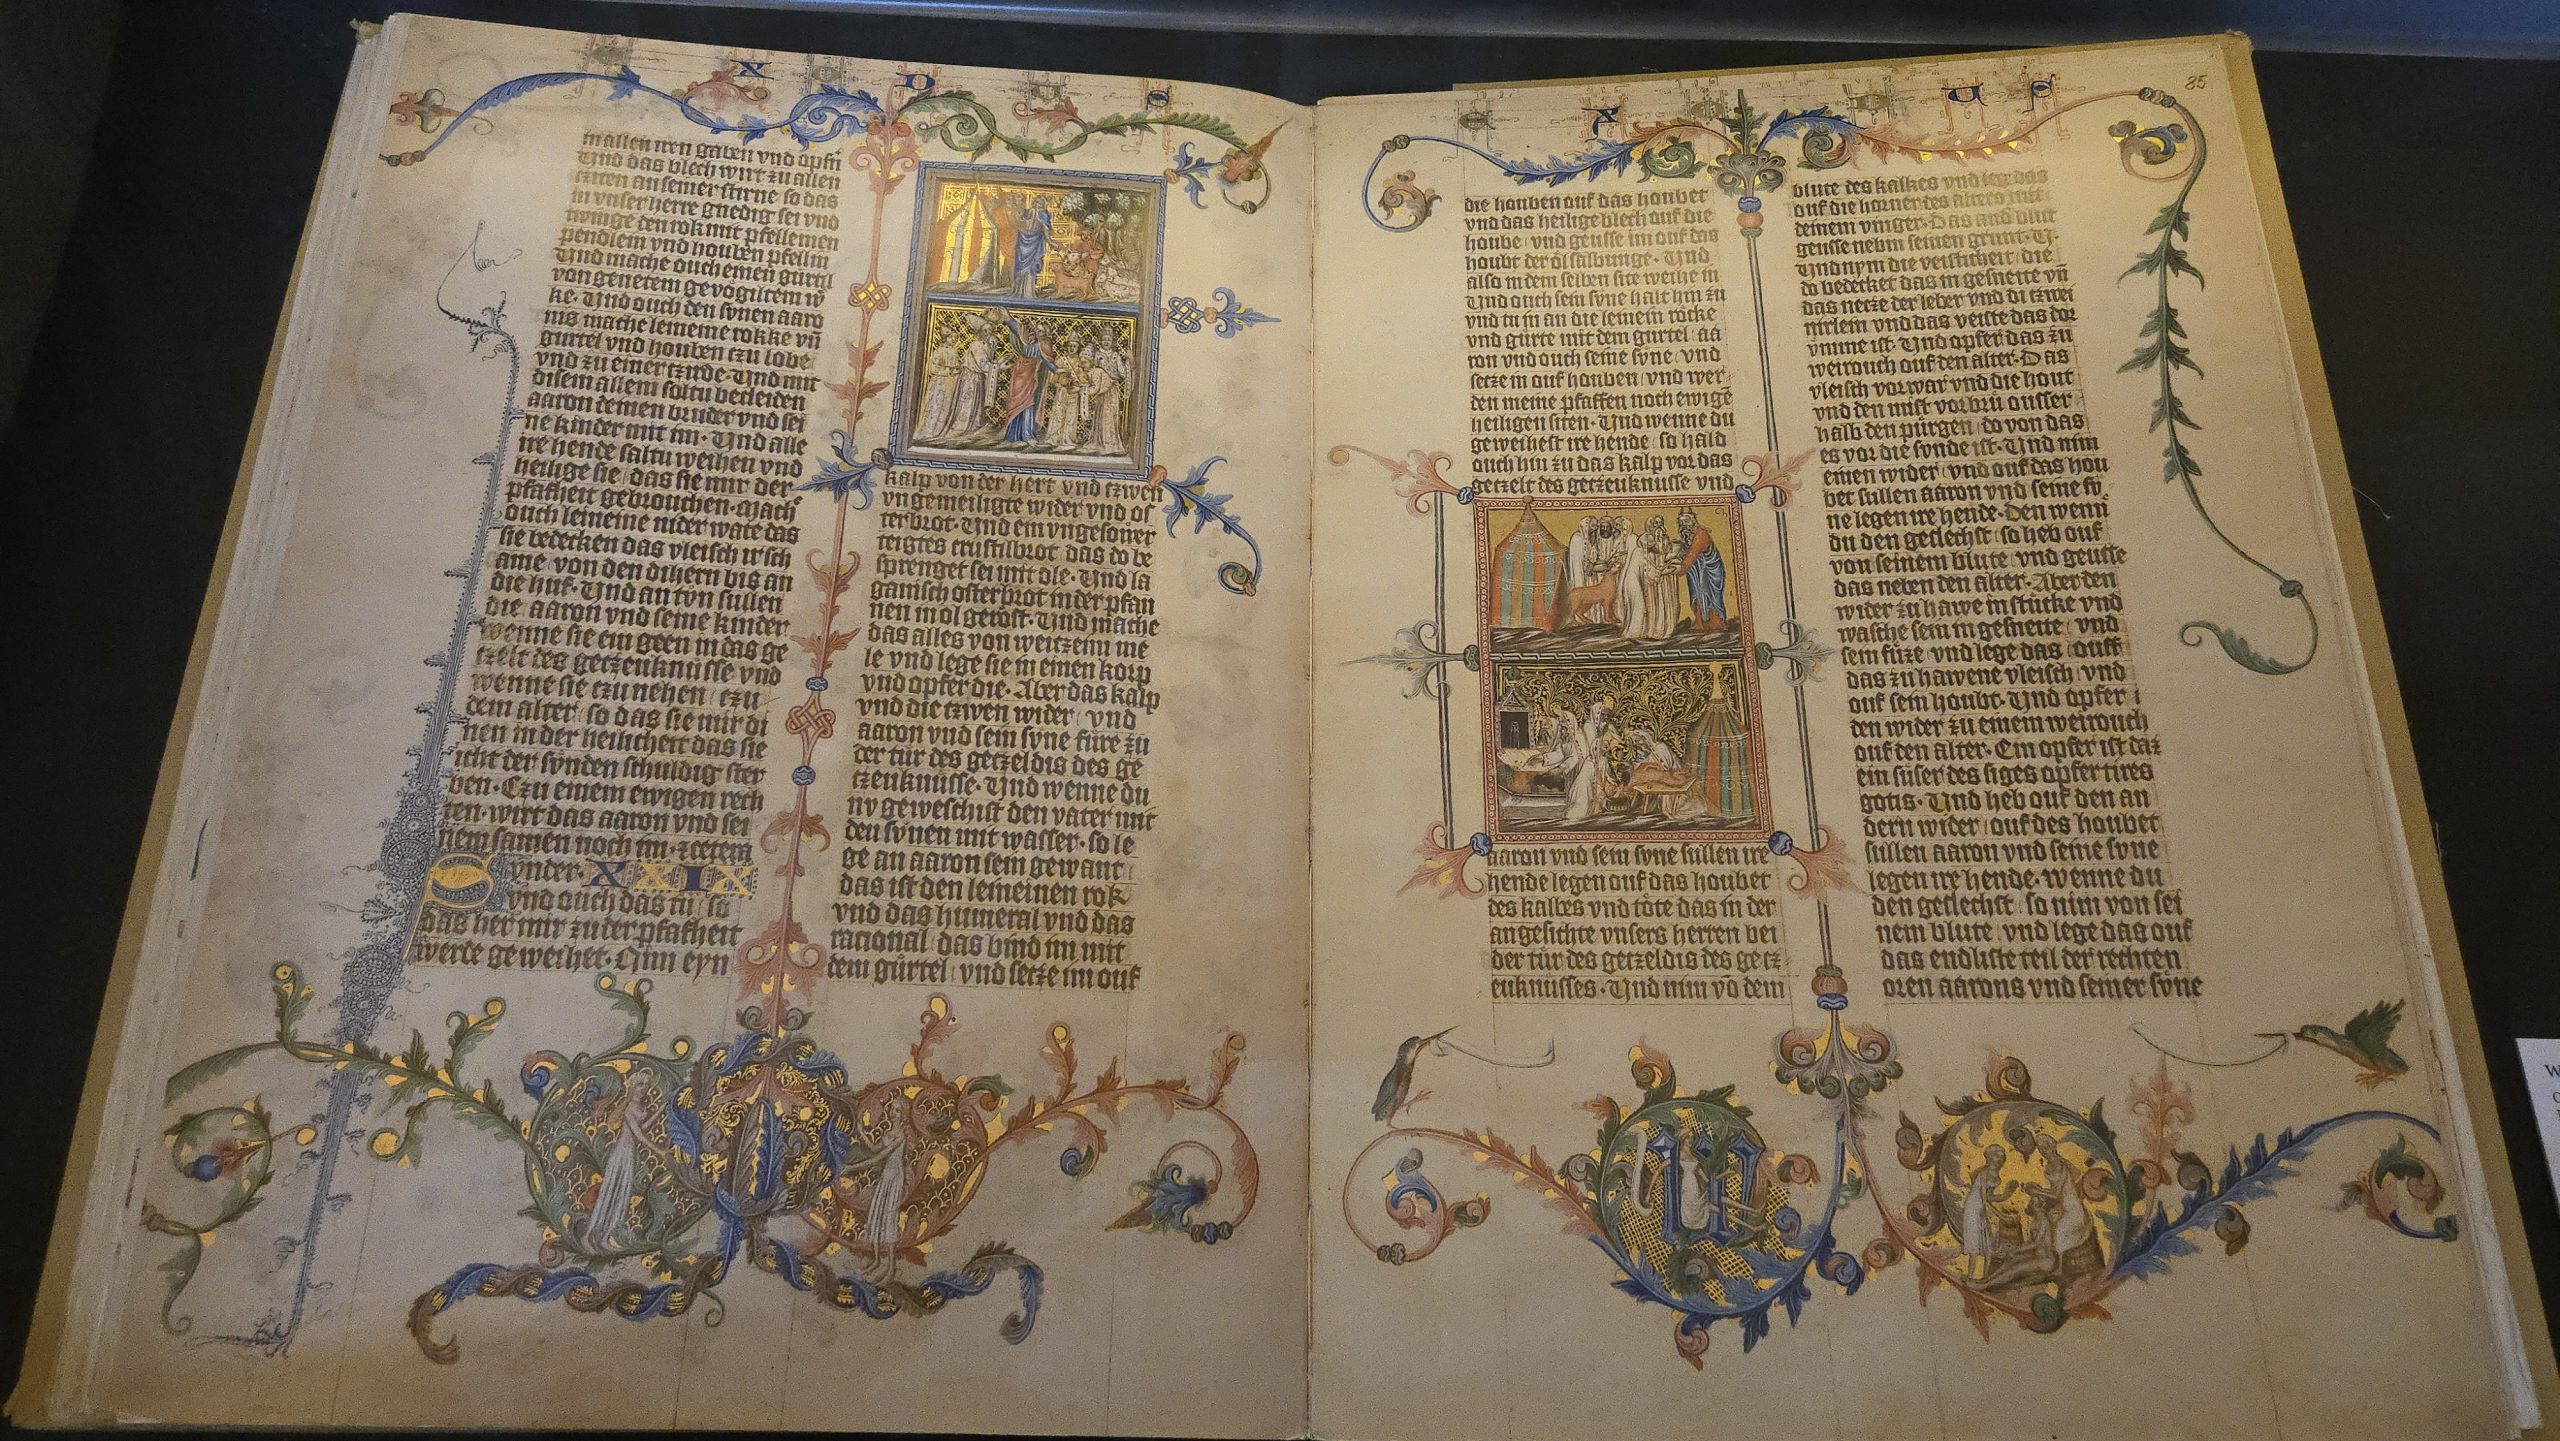 X D O
in allen iren gaben vnd opfn̄
Vnd das blech wirt zu allen
cziten an seiner stirne so das
in vnser herre gnedig sei vnd
twinge den rok mit pfellemen
pendlem vnd houben pfellin
Vnd mache ouch einen gurtil
von genetem gevogiltem w̄
ke · Vnd ouch den synen aaro
nis mache leineine rokke vn̄
gurtel vnd houben czu lobe
vnd zu einer czirde · Vnd mit
disem allem soltu becleiden
aaron deinen bruder vnd sei
ne kinder mit im · Vnd alle
ire hende saltu weihen vnd
heilige sie das sie mir der
pfafheit gebrouchen · Mach
ouch leineine nider wate das
sie bedecken das vleisch ir sch
ame von den dihern bis an
die huf · Vnd an tyn sullen
die aaron vnd seine kinder
wenne sie ein geen in das ge
czelt des geczeuknusse vnd
wenne sie czu nehen czu
dem alter so das sie mir di
nen in der heilicheit das sie
icht der synden schuldig ster
ben · Czu einem ewigen rech
ten wirt das aaron vnd sei
nem samen noch im · zcetem
Synder · XXIX
vnd ouch das tu so
das her mir zu der pfafheit
werde geweihet · Nim eyn
kalp von der hert vnd czwen
vngemeiligte wider vnd os
terbrot · Vnd ein vngesouer
teigtes crustilbrot das do be
sprenget sei mit ole · Vnd la
ganisch osterbrot in der pfan
nen in ol gerost · Vnd mache
das alles von weiczenin me
le vnd lege sie in einen korp
vnd opfer die · Aber das kalp
vnd die czwen wider vnd
aaron vnd sein syne fure zu
der tur des geczeldis des ge
czeuknusse · Vnd wenne du
nv geweschist den vater mit
den synen mit wasser · so le
ge an aaron sein gewant
das ist den leineinen rok
vnd das humeral vnd das
racional das bind im mit
dem gürtel vnd setze im ouf
85
die houben ouf das houbet
vnd das heilige blech ouf die
hoube vnd geusse im ouf das
houbt der ol salbunge · Vnd
also in dem selben site weihe in
Vnd ouch sein syne halt hin zu
vnd tu in an die leinein röcke
vnd gürte mit dem gurtel aa
ron vnd ouch seine syne vnd
setze in ouf houben vnd wer
den meine pfaffen noch ewigē
heiligen siten · Vnd wenne du
geweihest ire hende so hald
ouch hin zu das kalp vor das
getzelt des getzeuknusse vnd
aaron vnd sein syne sullen ire
hende legen ouf das houbet
des kalbes vnd töte das in der
angesichte vnsers herren bei
der tür des getzeldis des getz
euknusses · Vnd nim vō dem
blute des kalkes vnd leg das
ouf die horner des alters mit
deinem vinger · Das and blut
geusse nebin seinen grunt · V
Vnd nym die veisticheit die
do bedecket das in gesneite vn̄
das netze der leber vnd di czwei
nirlein vnd das veiste das dor
vmme ist · Vnd opfer das zu
weirouch ouf den alter · Das
vleisch vorwar vnd die hout
vnd den mist vorbrü ousser
halb den pürgen do von das
es vor die synde ist · Vnd nim
einen wider vnd ouf das hou
bet sullen aaron vnd seine sy
ne legen ire hende · Den wenn
du den geslechst so heb ouf
von seinem blute vnd geusse
das neben den alter · Aber den
wider zu hawe in stücke vnd
wasche sein in gesneite vnd
sein füze vnd lege das ouff
das zu hawene vleisch vnd
ouf sein houbt · Vnd opfer
den wider zu einem weirouch
ouf den alter · Ein opfer ist daz
ein süser des siges opfertires
gotis · Vnd heb ouf den an
dern wider ouf des houbet
sullen aaron vnd seine syne
legen ire hende · wenne du
den geslechst so nim von sei
nem blute vnd lege das ouf
das endliste teil der rechten
oren aarons vnd seiner syne